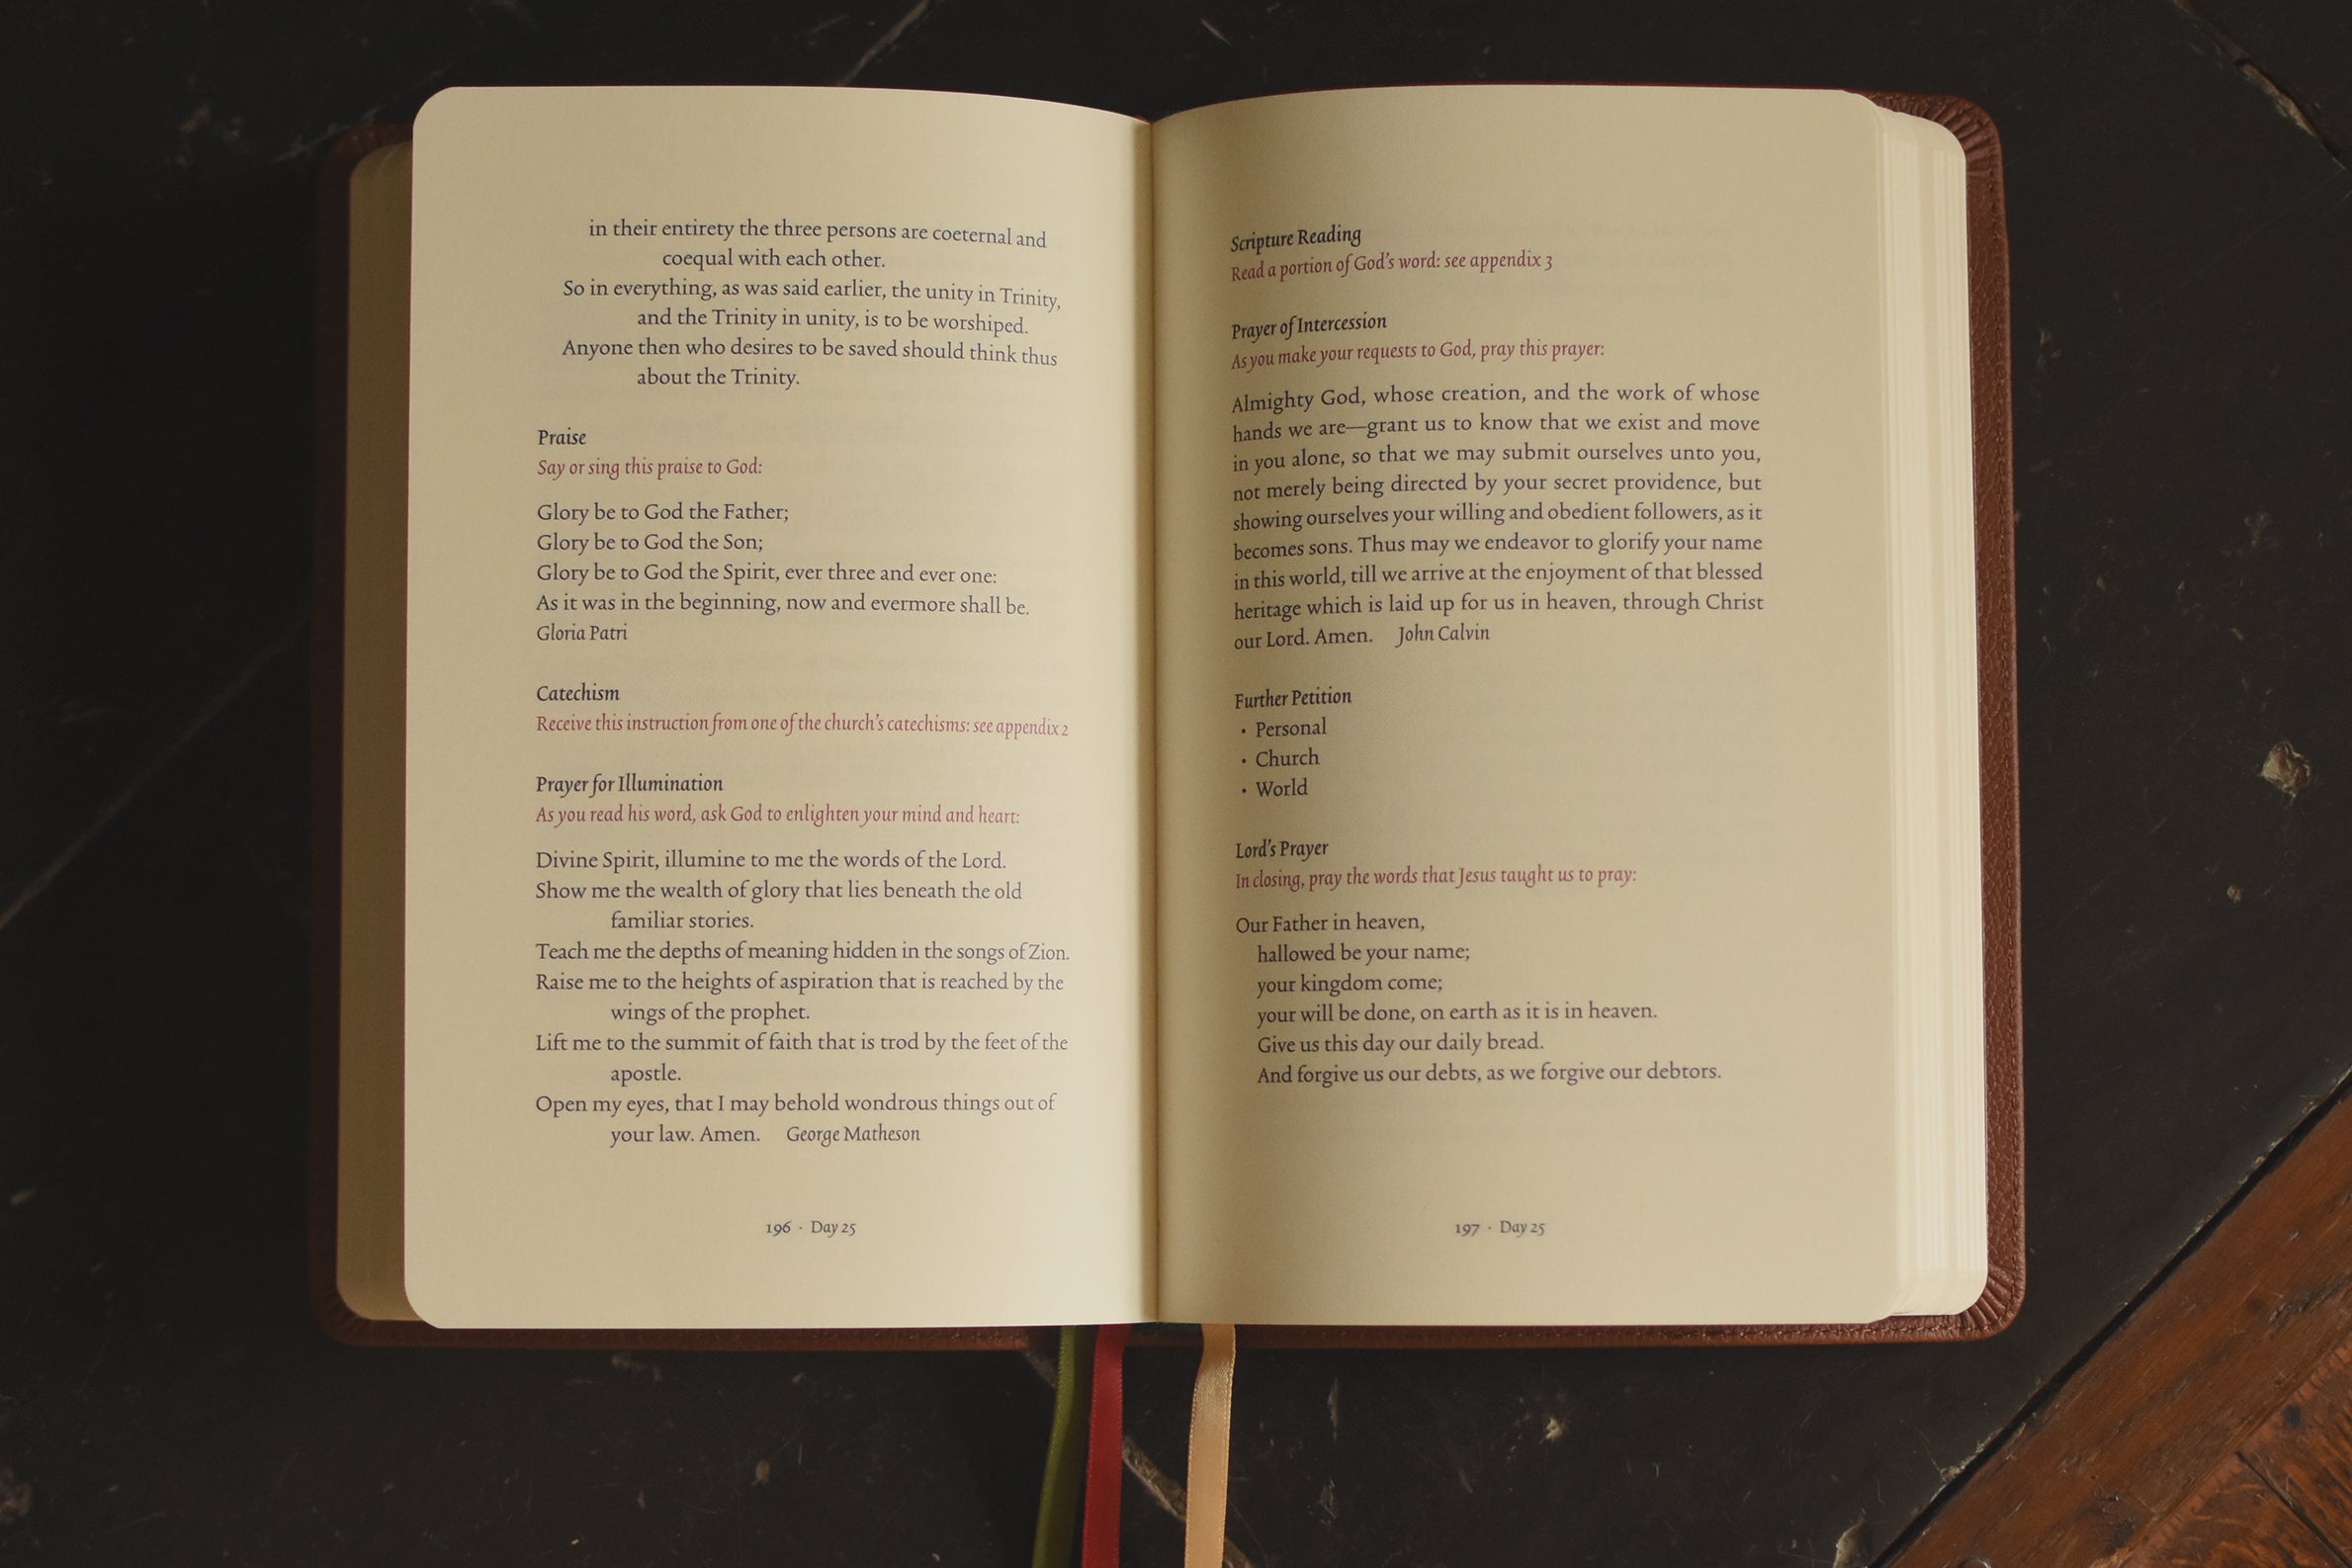 in their entirety the three persons are coeternal and
coequal with each other.
So in everything, as was said earlier, the unity in Trinity,
and the Trinity in unity, is to be worshiped.
Anyone then who desires to be saved should think thus
about the Trinity.
Praise
Say or sing this praise to God:
Glory be to God the Father;
Glory be to God the Son;
Glory be to God the Spirit, ever three and ever one:
As it was in the beginning, now and evermore shall be.
Gloria Patri
Catechism
Receive this instruction from one of the church's catechisms: see appendix 2
Prayer for Illumination
As you read his word, ask God to enlighten your mind and heart:
Divine Spirit, illumine to me the words of the Lord.
Show me the wealth of glory that lies beneath the old
familiar stories.
Teach me the depths of meaning hidden in the songs of Zion.
Raise me to the heights of aspiration that is reached by the
wings of the prophet.
Lift me to the summit of faith that is trod by the feet of the
apostle.
Open my eyes, that I may behold wondrous things out of
your law. Amen. George Matheson
196 · Day 25
Scripture Reading
Read a portion of God's word: see appendix 3
Prayer of Intercession
As you make your requests to God, pray this prayer:
Almighty God, whose creation, and the work of whose
hands we are—grant us to know that we exist and move
in you alone, so that we may submit ourselves unto you,
not merely being directed by your secret providence, but
showing ourselves your willing and obedient followers, as it
becomes sons. Thus may we endeavor to glorify your name
in this world, till we arrive at the enjoyment of that blessed
heritage which is laid up for us in heaven, through Christ
our Lord. Amen. John Calvin
Further Petition
• Personal
• Church
• World
Lord's Prayer
In closing, pray the words that Jesus taught us to pray:
Our Father in heaven,
hallowed be your name;
your kingdom come;
your will be done, on earth as it is in heaven.
Give us this day our daily bread.
And forgive us our debts, as we forgive our debtors.
197 · Day 25